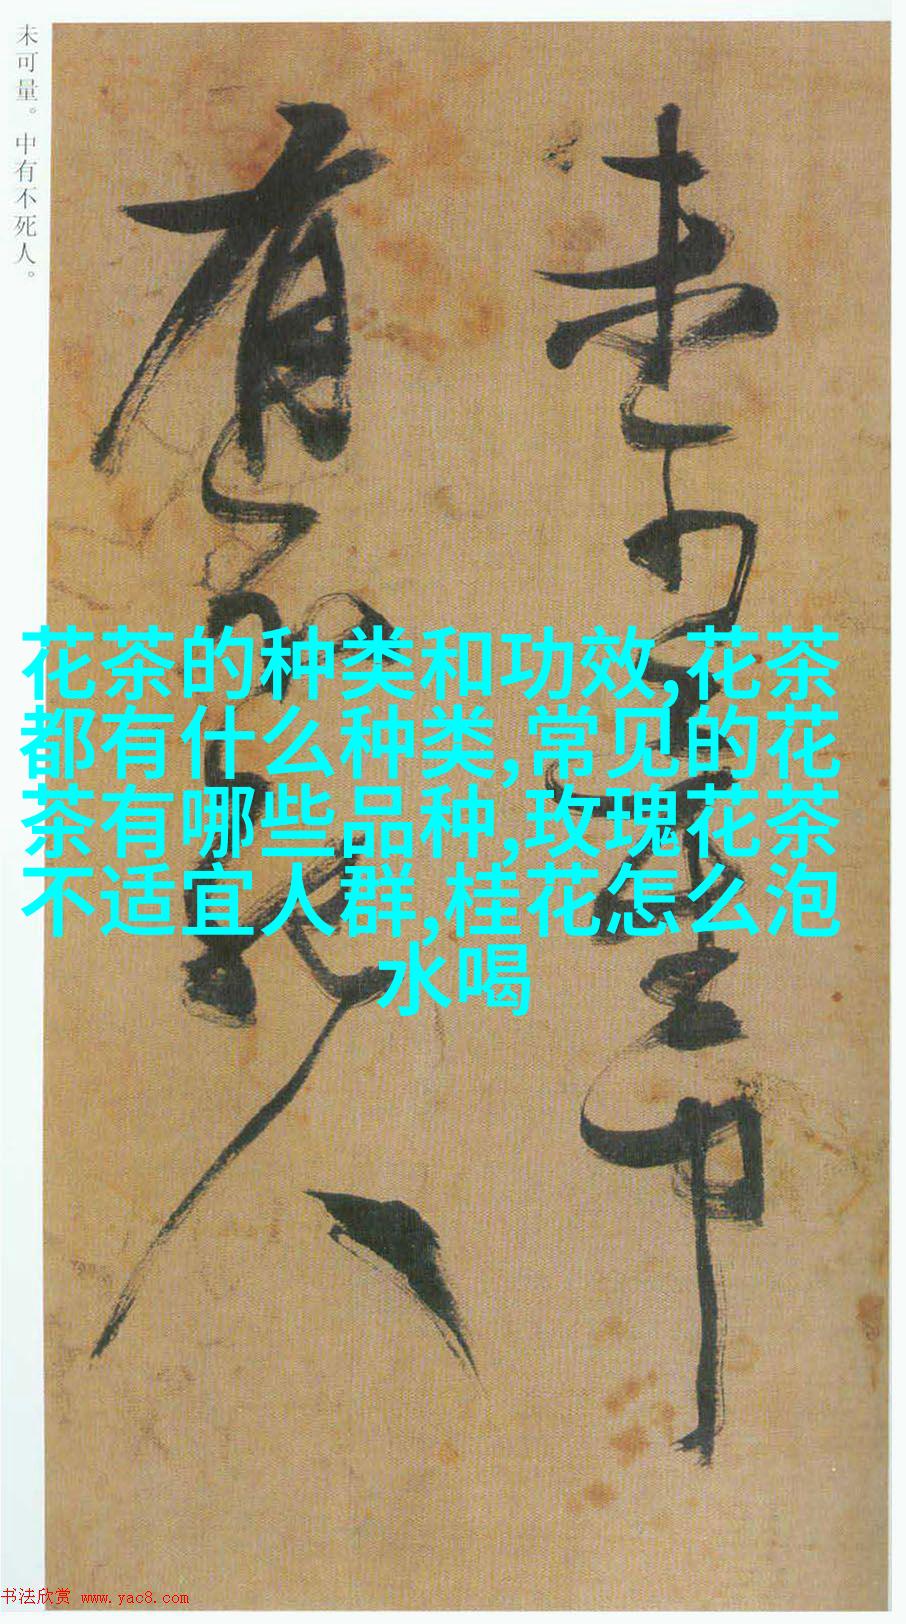 未可量。中有不死人。
未可量中
有不死人
花茶的种类和功效,花茶
都有什么种类,常见的花
茶有哪些品种,玫瑰花茶
不适宜人群,桂花怎么泡
水喝
书法欣赏 www.yac8.com